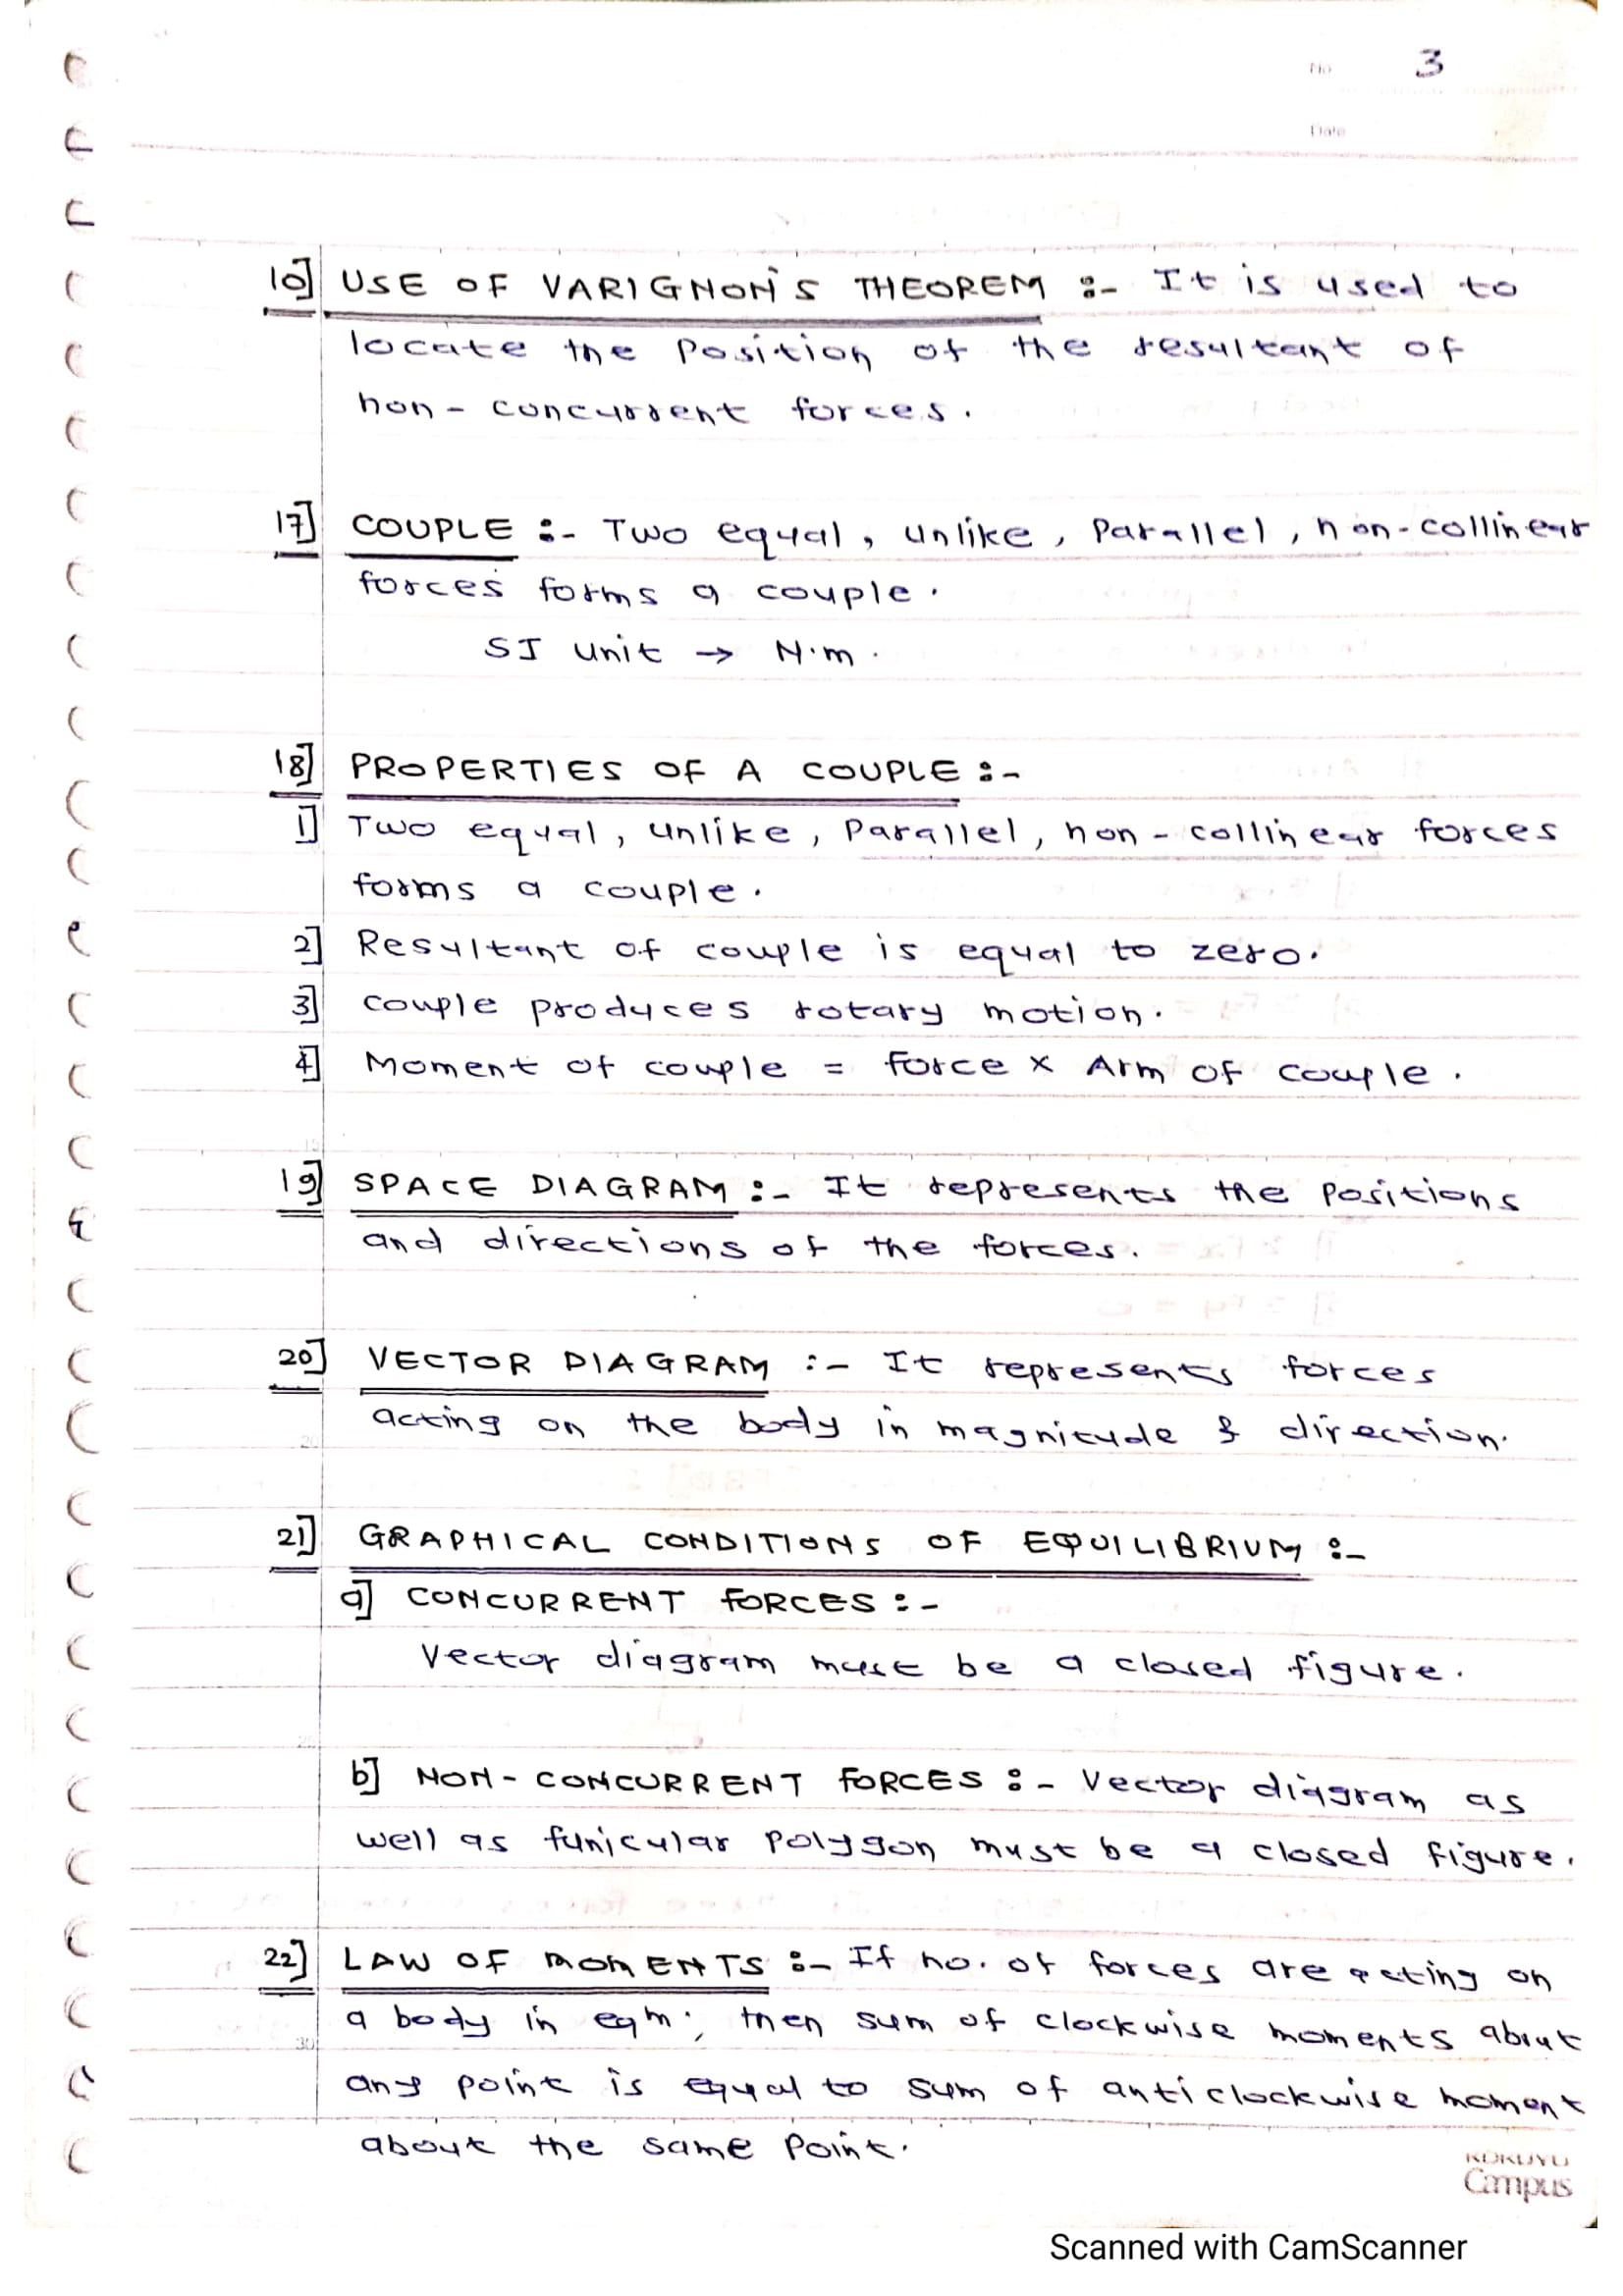 No 3
Date
10] USE OF VARIGNON'S THEOREM :- It is used to
locate the Position of the resultant of
non - concurrent forces.
17] COUPLE :- Two equal, unlike, Parallel, non-collinear
forces forms a couple.
SI unit → N.m.
18] PROPERTIES OF A COUPLE :-
1] Two equal, unlike, Parallel, non - collinear forces
forms a couple.
2] Resultant of couple is equal to zero.
3] couple produces rotary motion.
4] Moment of couple = force x Arm of couple.
19] SPACE DIAGRAM :- It represents the Positions
and directions of the forces.
20] VECTOR DIAGRAM :- It represents forces
acting on the body in magnitude & direction.
21] GRAPHICAL CONDITIONS OF EQUILIBRIUM :-
a] CONCURRENT FORCES :-
Vector diagram must be a closed figure.
b] NON - CONCURRENT FORCES :- Vector diagram as
well as funicular Polygon must be a closed figure.
22] LAW OF MOMENTS :- If no. of forces are acting on
a body in eqm; then sum of clockwise moments about
any point is equal to sum of anticlockwise moment
about the same Point.
KOKUYO
Campus
Scanned with CamScanner